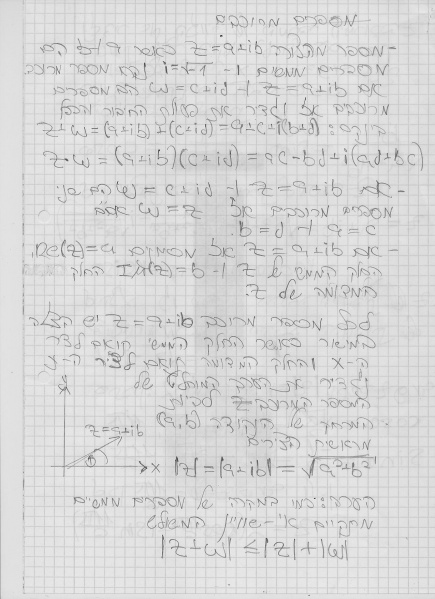 מספרים מרוכבים
- מספר מהצורה z=a+ib כאשר a ו-b הם
מספרים ממשיים ו- i=√-1 נקרא מספר מרוכב.
אם z=a+ib ו- w=c+id הם מספרים
מרוכבים אז נגדיר את פעולת החיבור והכפל
בינהם: z+w=(a+ib)+(c+id)=a+c+i(b+d)
z·w=(a+ib)(c+id)=ac-bd+i(ad+bc)
- אם z=a+ib ו- w=c+id הם שני
מספרים מרוכבים אז z=w אםם
a=c ו- b=d.
- אם z=a+ib אז מסמנים Re(z)=a,
החלק הממשי של z ו- Im(z)=b החלק
המדומה של z.
לכל מספר מרוכב z=a+ib יש הצגה
במישור כאשר החלק הממשי תואם לציר
ה-x והחלק המדומה תואם לציר ה-y.
y
נגדיר את הערך המוחלט של
המספר המרוכב z להיות
המרחק של הנקודה (a,b)
z=a+ib
מראשית הצירים
x |z|=|a+ib|=√a²+b²
הערה: כמו במקרה של מספרים ממשיים
מתקיים אי-שוויון המשולש
|z+w|≤|z|+|w|